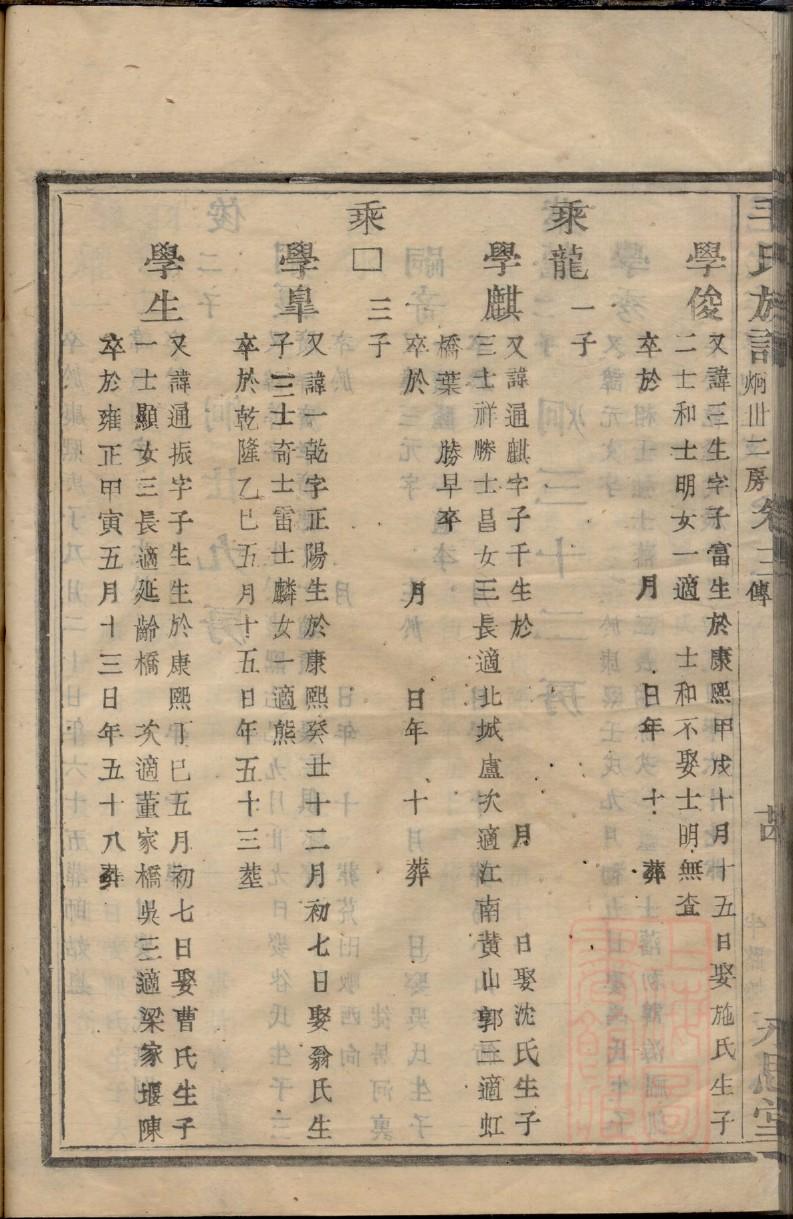 毛氏族譜 炯卅二房 卷三 傳 十四
學俊 又諱三生字子富生於康熙甲戌十月十五日娶施氏生子
二士和士明女一適 士和不娶士明無查
卒於 月 日年 十 葬
乘龍 一子
學麒 又諱通麒字子千生於 月 日娶沈氏生子
三士祥勝士昌女三長適北城盧次適江南黄山郭三適虹
橋葉 勝早卒
卒於 月 日年 十月葬
乘□ 三子
學皐 又諱一乾字正陽生於康熙癸丑十二月初七日娶翁氏生
子三士奇士雷士麟女一適熊
卒於乾隆乙巳五月十五日年五十三塟
學生 又諱通振字子生生於康熙丁巳五月初七日娶曹氏生子
一士顯女三長適延齡橋 次適董家橋吳三適梁家堰陳
卒於雍正甲寅五月十三日年五十八葬